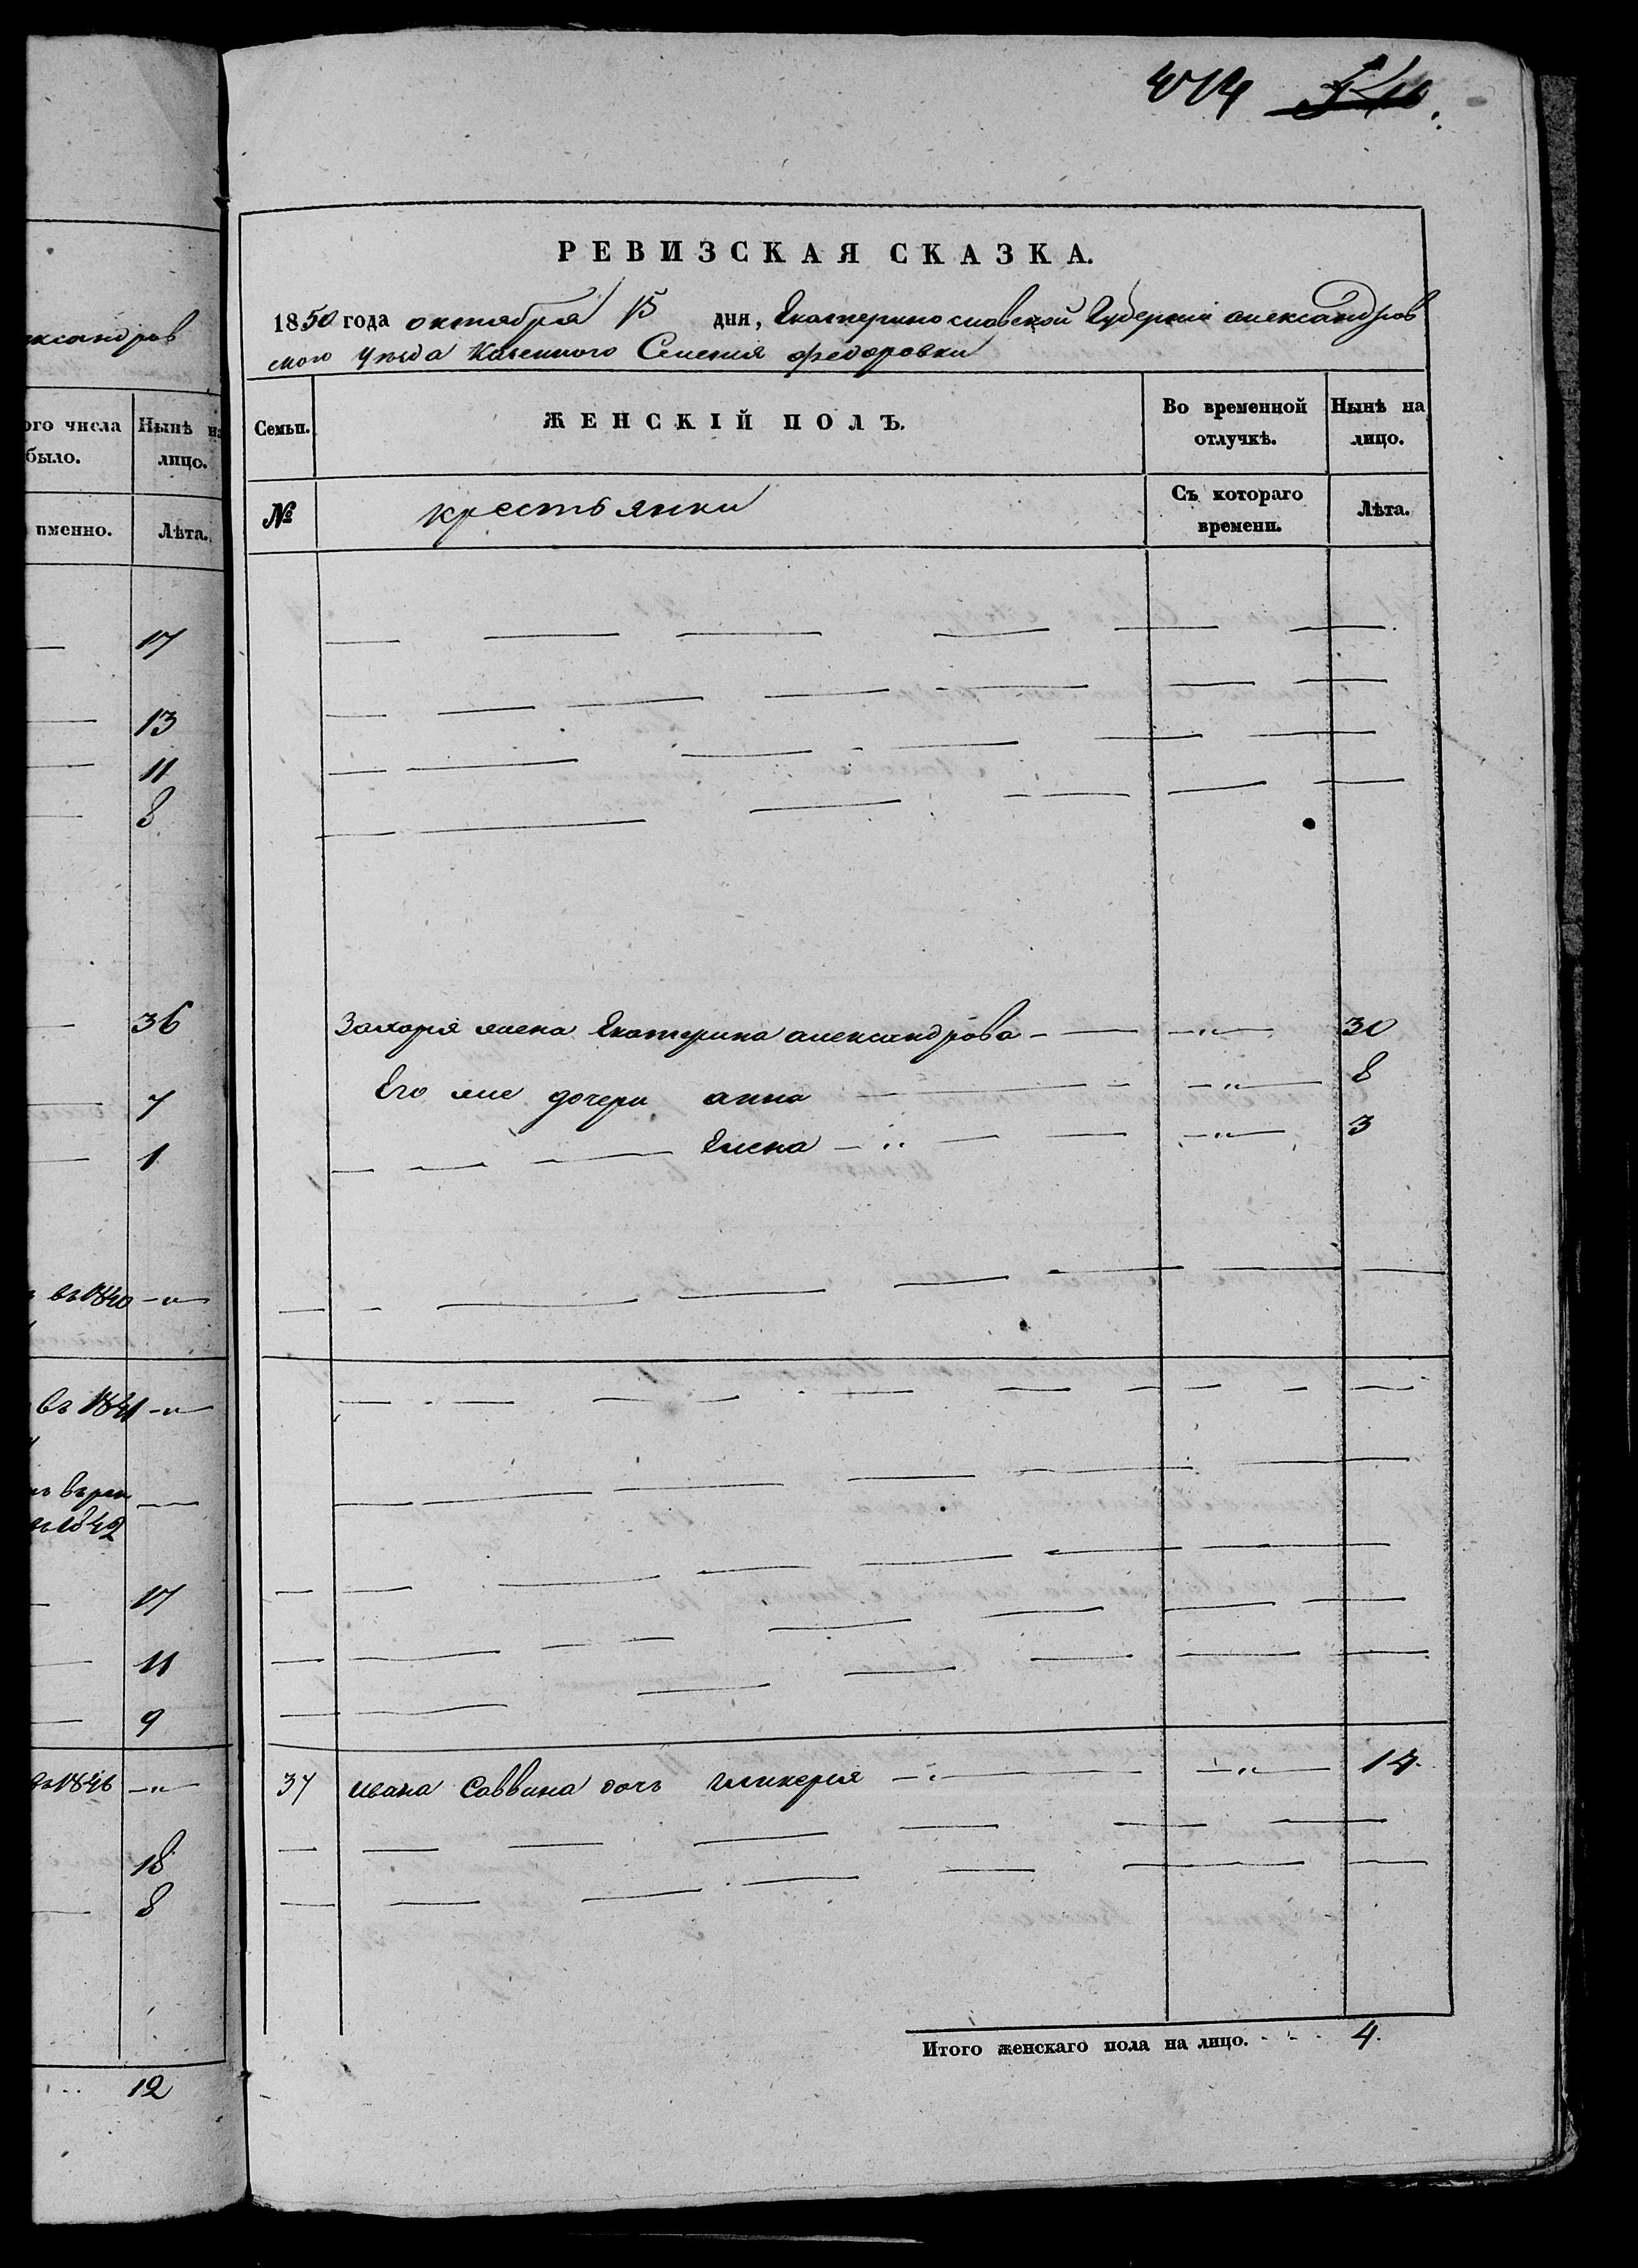 РЕВИЗСКАЯ СКАЗКА.
1850 года октября 15 дня, Екатеринославской Губернии александров
ского уѣзда Казенного Селения федоровки
ксандров
ого числа Нынѣ на
было. лицо.
именно. Лѣта.
Семьи. ЖЕНСКІЙ ПОЛЪ. Во временной отлучкѣ. Нынѣ на лицо.
№ крестьянки Съ котораго времени. Лѣта.
17
13
11
8
36
7
1
въ 1840
въ 1841
1842
17
11
9
1846
18
8
12
Захария жена Екатерина александрова 30
Его же дочери анна 8
Елена 3
37 ивана Саввина дочь гликерия 14.
Итого женскаго пола на лицо. 4.